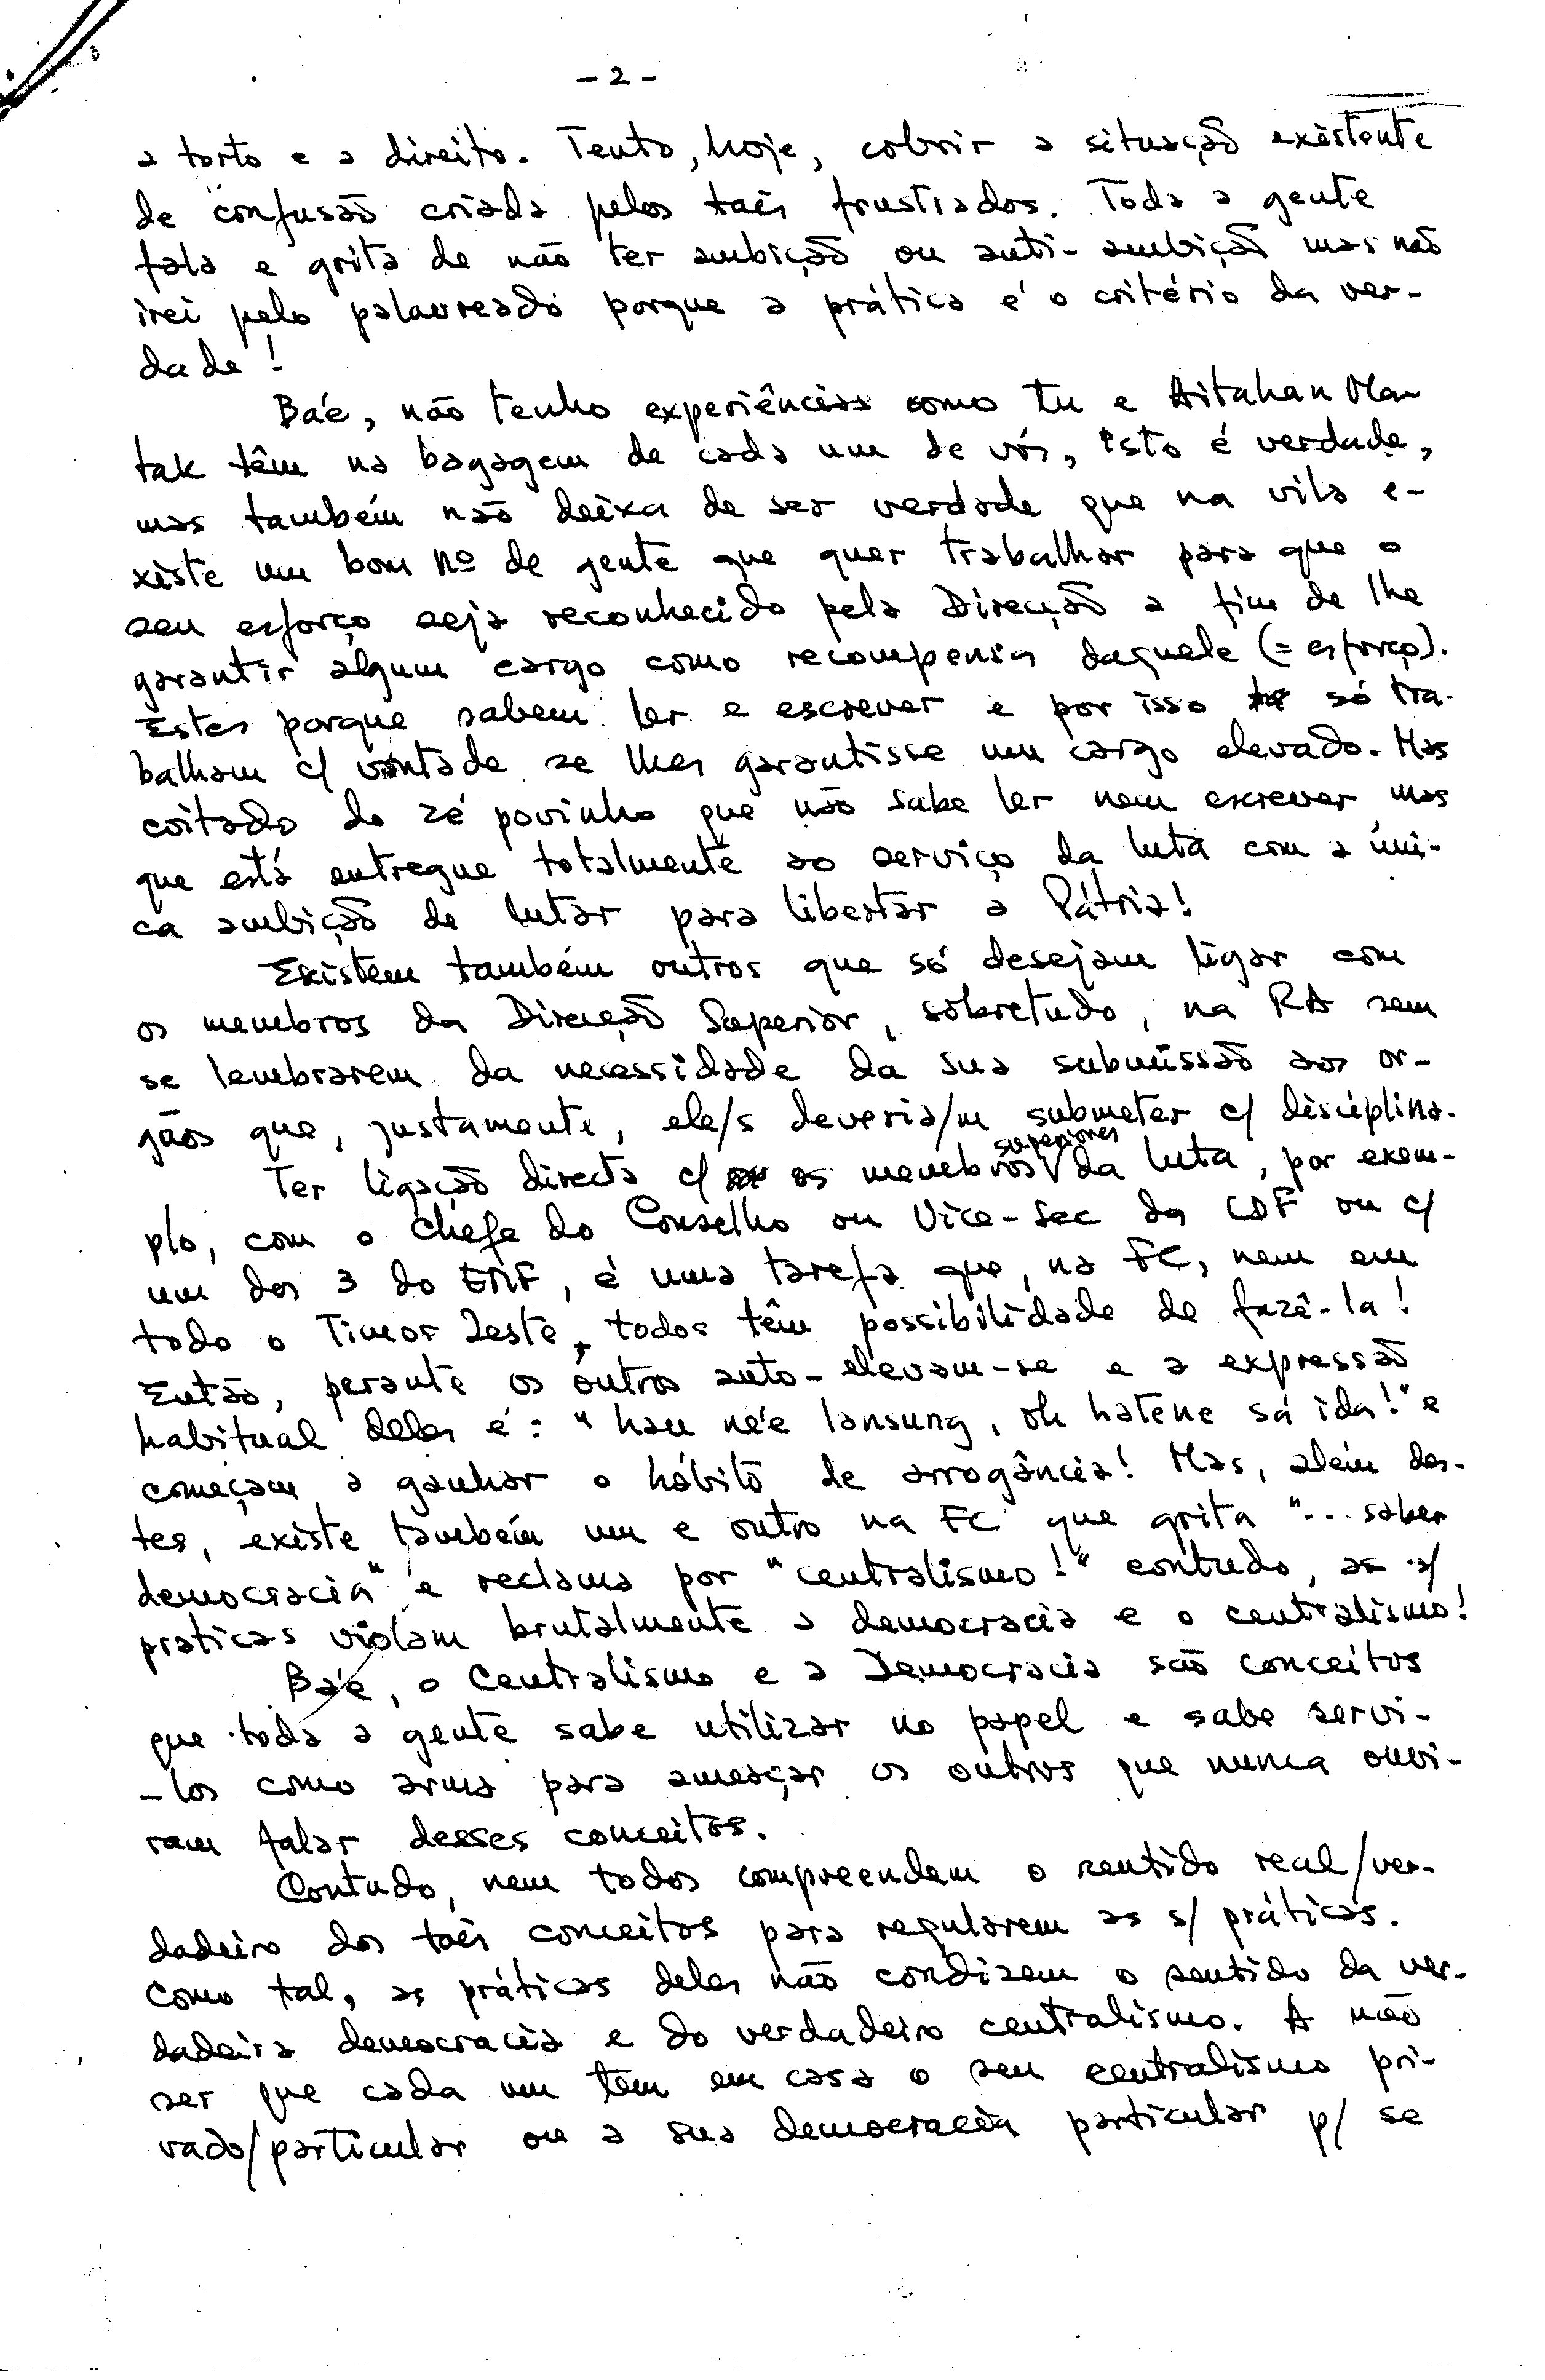 - 2 -
a torto e a direito. Tento, hoje, cobrir a situação existente
de confusão criada pelos tais frustrados. Toda a gente
fala e grita de não ter ambição ou anti-ambição mas não
irei pelo palavreado porque a prática é o critério da ver-
dade!
Baé, não tenho experiências como tu e Aitahan Ma-
tak têm na bagagem de cada um de vós, isto é verdade,
mas também não deixa de ser verdade que na vila e-
xiste um bom nº de gente que quer trabalhar para que o
seu esforço seja reconhecido pela Direcção a fim de lhe
garantir algum cargo como recompensa daquele (= esforço).
Estes porque sabem ler e escrever e por isso só tra-
balham c/ vontade se lhes garantisse um cargo elevado. Mas
coitado do zé povinho que não sabe ler nem escrever, mas
que está entregue totalmente ao serviço da luta com a úni-
ca ambição de lutar para libertar a Pátria!
Existem também outros que só desejam ligar com
os membros da Direcção Superior, sobretudo, na RA sem
se lembrarem da necessidade da sua submissão aos or-
gãos que, justamente, ele/s deveria/m submeter c/ disciplina.
Ter ligação directa c/ os membros superiores da luta, por exem-
plo, com o chefe do Conselho ou Vice-Sec da CDF ou c/
um dos 3 do EMF, é uma tarefa que, na FC, nem em
todo o Timor Leste, todos têm possibilidade de fazê-la!
Então, perante os outros auto-elevam-se e a expressão
habitual deles é: "hau né'e lansung, oh hatene sá ida!" e
começam a ganhar o hábito de arrogância! Mas, além des-
tes, existe também um e outro na FC que grita "... saber
democracia" e reclama por "centralismo!" contudo, as s/
praticas violam brutalmente a democracia e o centralismo!
Baé, o Centralismo e a Democracia são conceitos
que toda a gente sabe utilizar no papel e sabe servi-
-los como arma para ameaçar os outros que nunca ouvi-
ram falar desses conceitos.
Contudo, nem todos compreendem o sentido real/ver-
dadeiro dos tais conceitos para regularem as s/ práticas.
Como tal, as práticas deles não condizem o sentido da ver-
dadeira democracia e do verdadeiro centralismo. A não
ser que cada um tem em casa o seu centralismo pri-
vado/particular ou a sua democracia particular p/ se